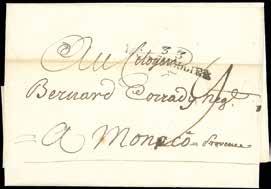 33
Au Citoyen
Bernard Corrady neg.t
a Monaco en Provence